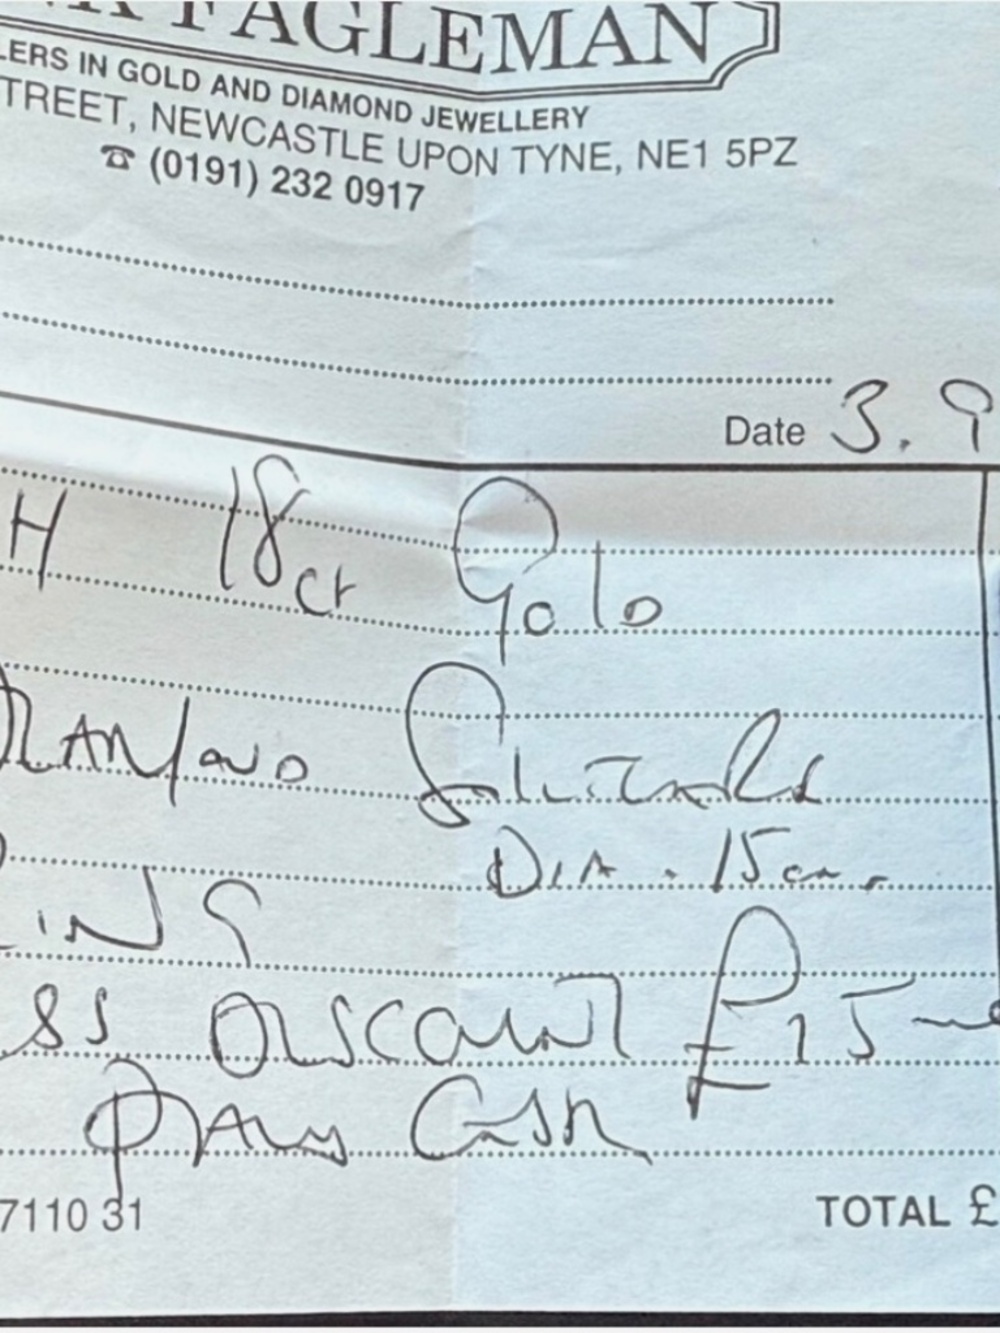 FAGLEMAN
LERS IN GOLD AND DIAMOND JEWELLERY
TREET, NEWCASTLE UPON TYNE, NE1 5PZ
☎ (0191) 232 0917
Date 3.9
H 18ct Gold
Diamond Solitaire
DIA .15
ING
ss Discount £15
Cash
7110 31 TOTAL £